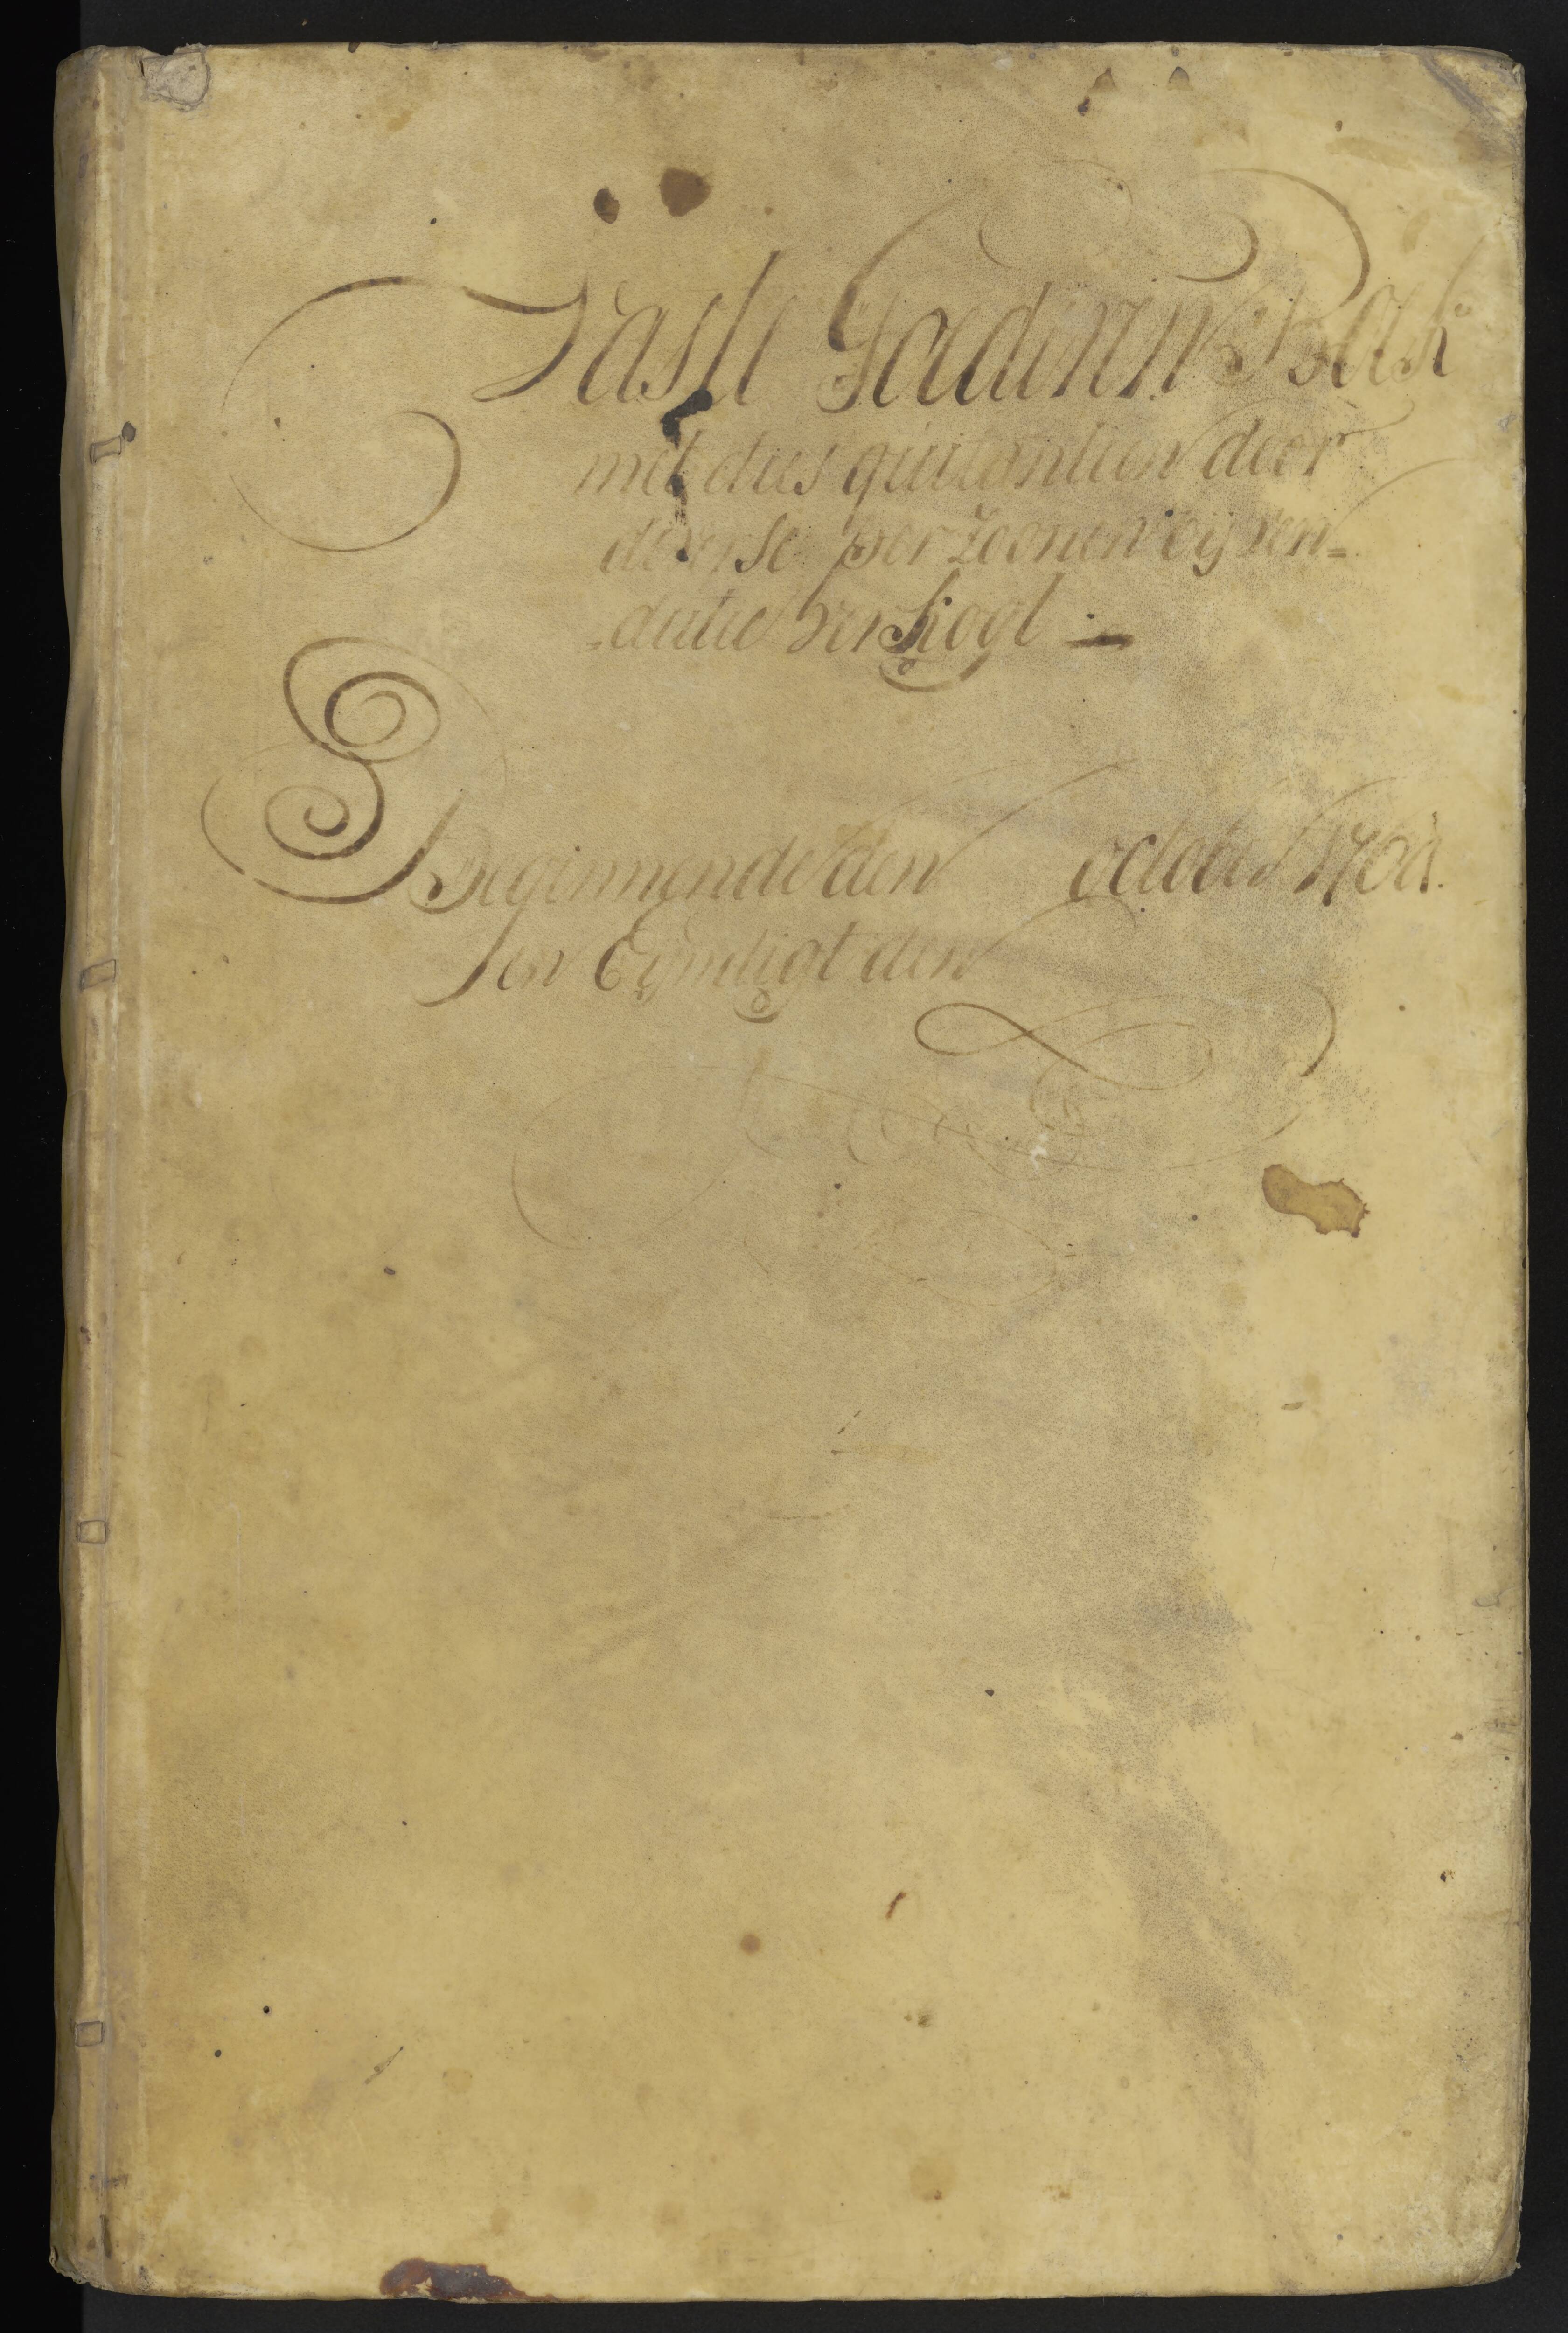 Vaste Goederen Boek
met dies quitantien door
diverse perzoonen bij ven=
=dutie verkogt —
Beginnende den october
en Eyndigt den